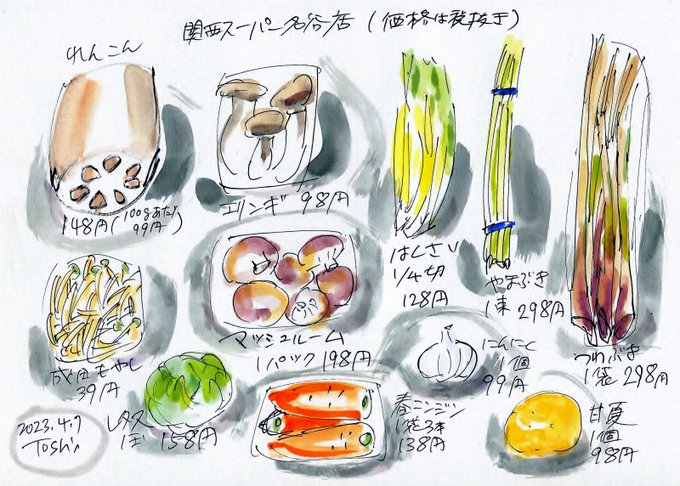 関西スーパー名谷店 (価格は税抜き)
れんこん
148円(100gあたり
99円)
エリンギ 98円
はくさい
1/4切
128円
やまぶき
1束 298円
つわぶき
1袋 298円
成田もやし
39円
マッシュルーム
1パック 198円
にんにく
1個
99円
レタス
1ケ 158円
春ニンジン
1袋3本
138円
甘夏
1個
98円
2023.4.7
Toshi